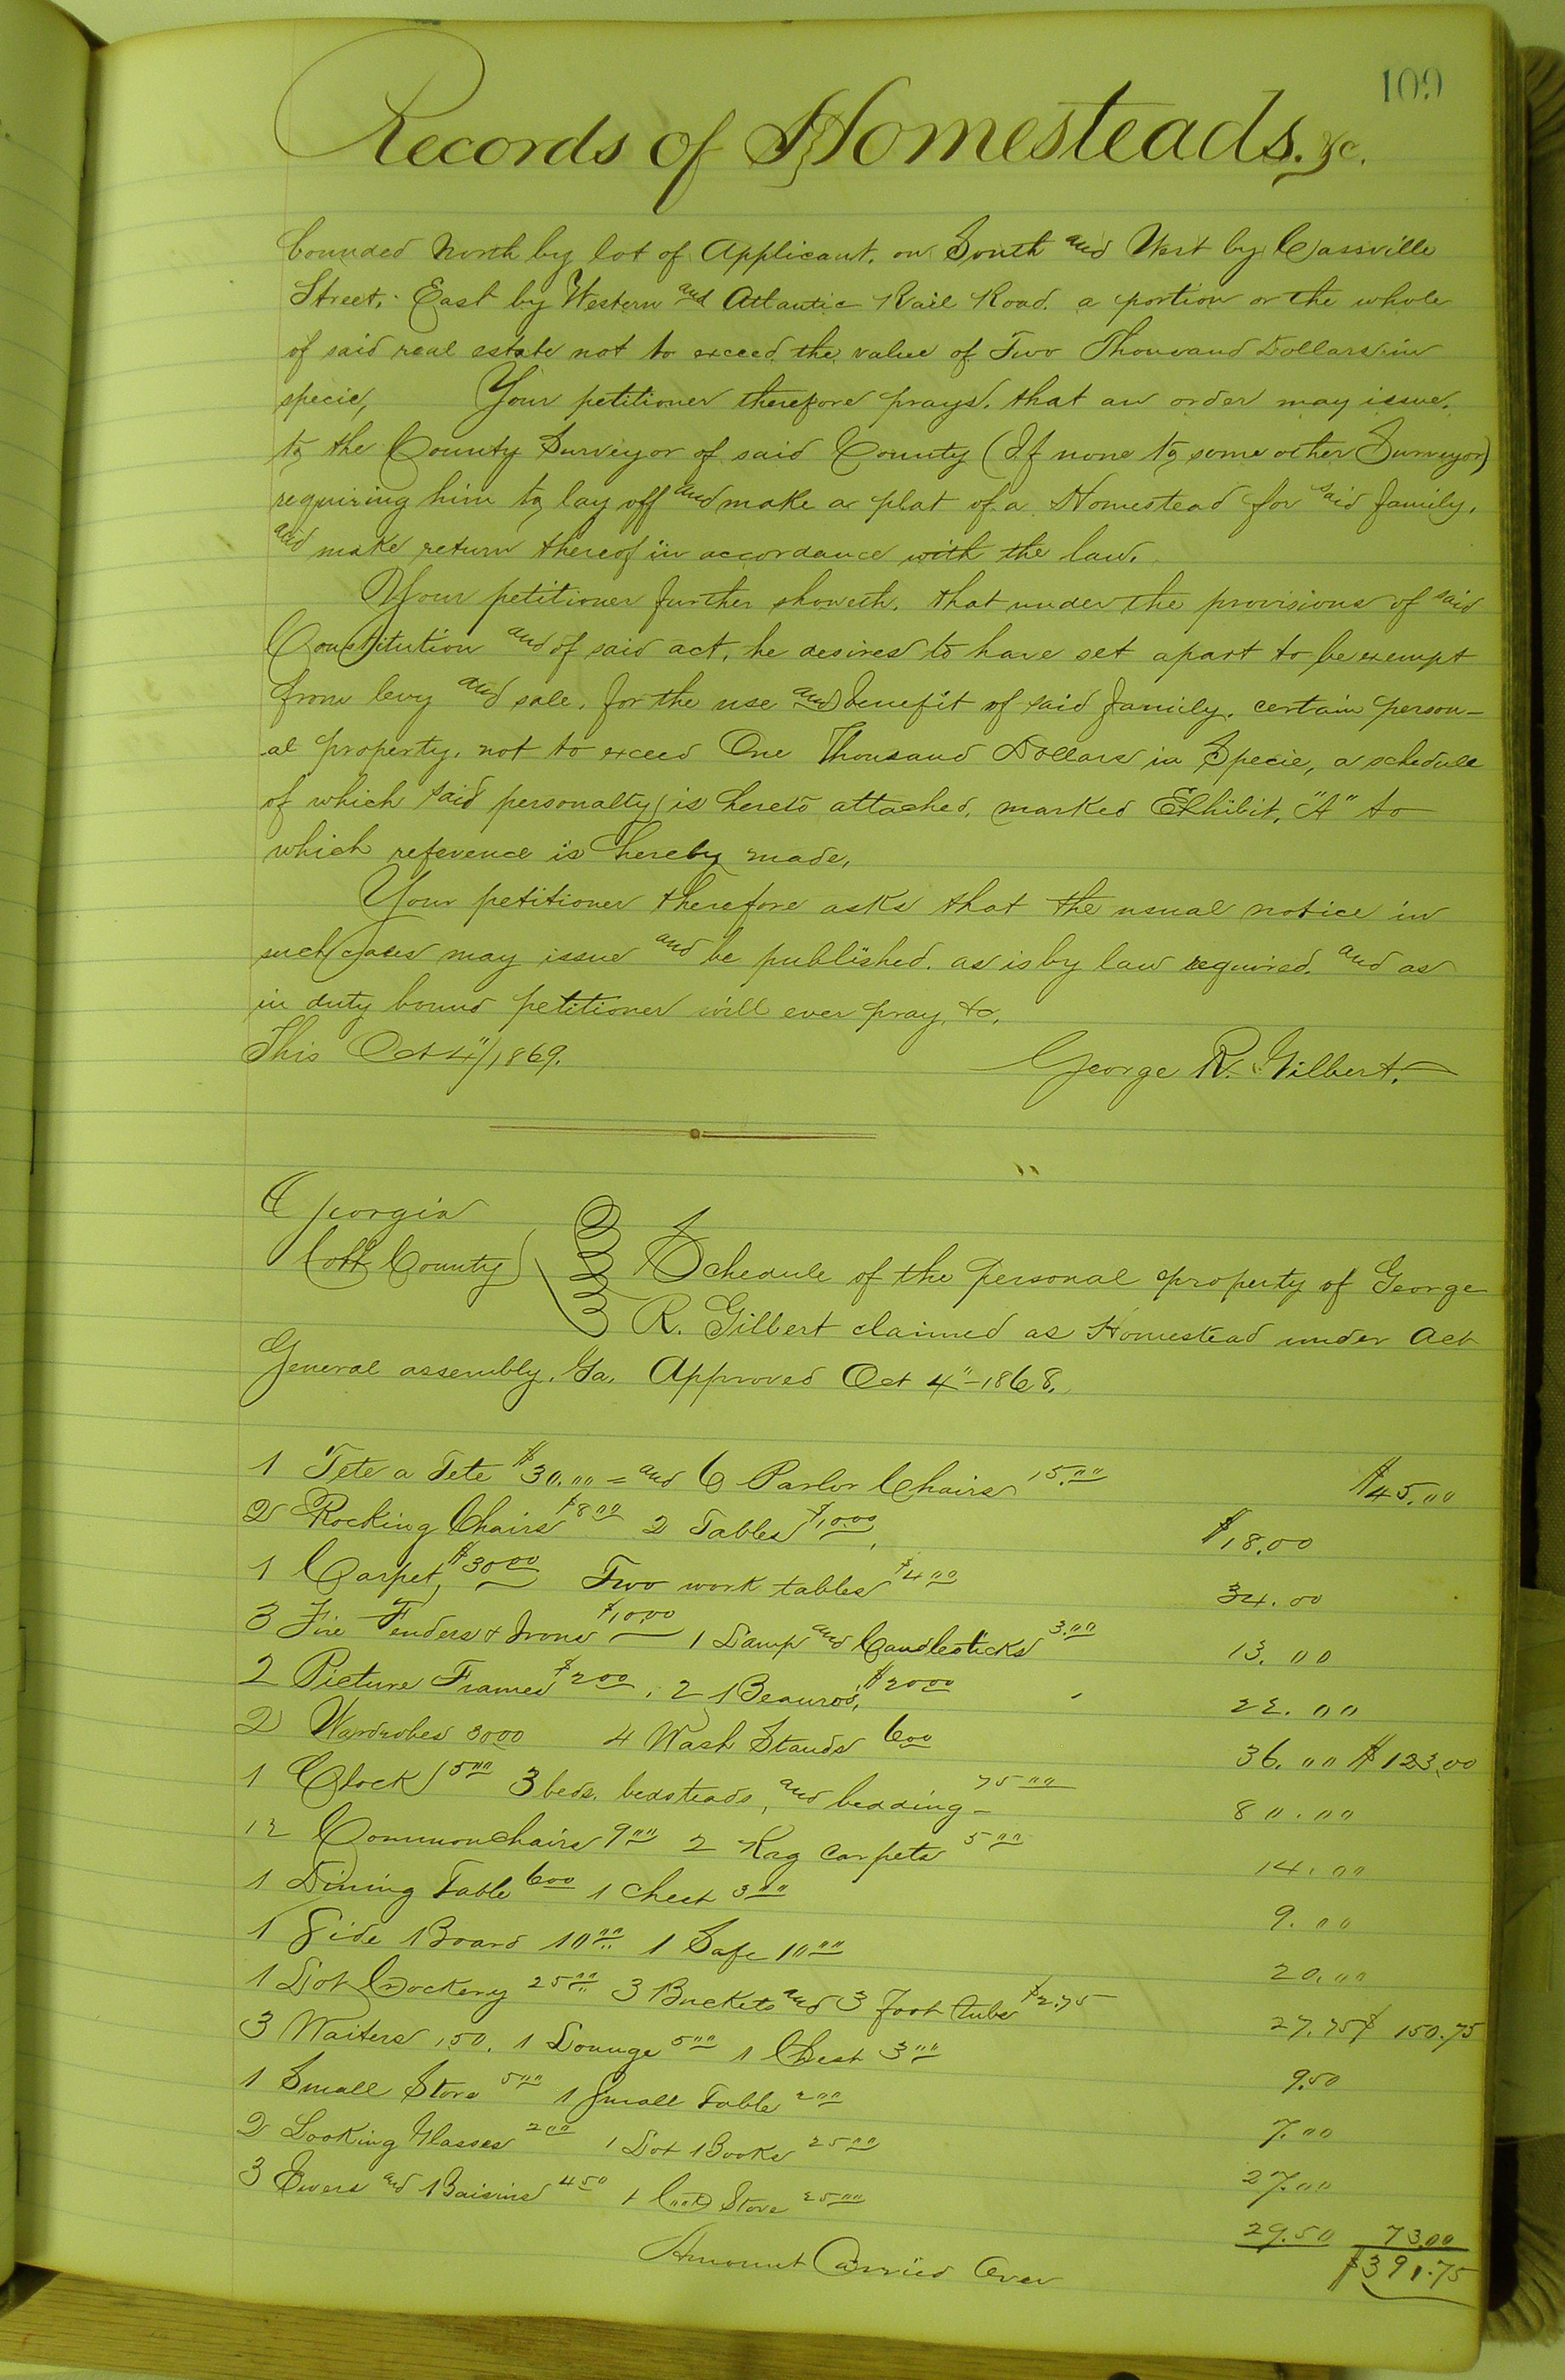 109
Records of Homesteads. &c.
bounded North by lot of Applicant. on South and West by Cassville
Street, East by Western and Atlantic Rail Road. a portion or the whole
of said real estate not to exceed the value of Two Thousand Dollars in
specie, Your petitioner therefore prays. that an order may issue.
to the County Surveyor of said County (If none to some other Surveyor)
requiring him to lay off and make a plat of a Homestead for said family,
and make return thereof in accordance with the law.
Your petitioner further showeth. that under the provisions of said
Constitution and of said act, he desires to have set apart to be exempt
from levy and sale, for the use and benefit of said family. certain person-
al property, not to exceed One Thousand Dollars in Specie, a schedule
of which said personalty is hereto attached, marked Exhibit, "A" to
which reference is hereby made,
Your petitioner therefore asks that the usual notice in
such cases may issue and be published. as is by law required. and as
in duty bound petitioner will ever pray, &c,
This Oct 4"/1869. George R. Gilbert.
Georgia
Cobb County
Schedule of the personal property of George
R. Gilbert claimed as Homestead under Act
General assembly, Ga, Approved Oct 4"-1868.
1 Tete a Tete $30.00 = and 6 Parlor Chairs 15.00 $45.00
2 Rocking Chairs $8 00 2 Tables $10.00, $18.00
1 Carpet, $30 00 Two work tables $4 00 34.00
3 Fire Fenders & Irons $10.00 1 Lamp and Candlesticks 3.00 13.00
2 Picture Frames $2 00, 2 Beauros, $20 00 22.00
2 Wardrobes 30 00 4 Wash Stands 6 00 36.00 $123.00
1 Clock 5 00 3 beds. bedsteads, and bedding - 75 00 80.00
12 Common chairs 9 00 2 Rag carpets 5 00 14.00
1 Dining Table 6 00 1 Chest 3 00 9.00
1 Side Board 10 00 1 Safe 10 00 20.00
1 Lot Crockery 25 00 3 Buckets and 3 foot tubs $2.75 27.75 $150.75
3 Waiters 1.50. 1 Lounge 5 00 1 Chest 3 00 9.50
1 Small Stove 5 00 1 Small Table 2 00 7.00
2 Looking Glasses 2 00 1 Lot Books 25 00 27.00
3 Ewers and Baisins 4 50 1 Cook Stove 25 00 29.50 73.00
Amount Carried Over $391.75